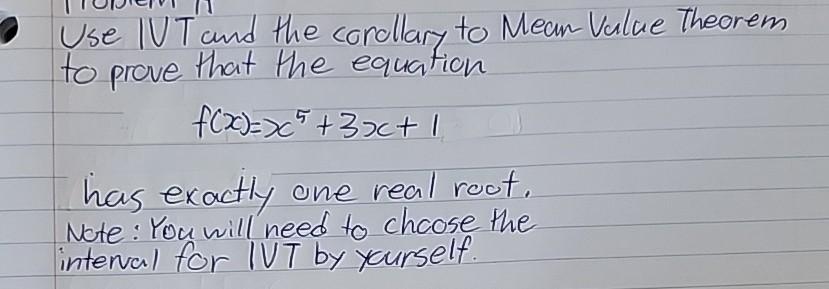 Use IVT and the corollary to Mean Value Theorem
to prove that the equation
f(x)=x⁵+3x+1
has exactly one real root.
Note: You will need to choose the
interval for IVT by yourself.